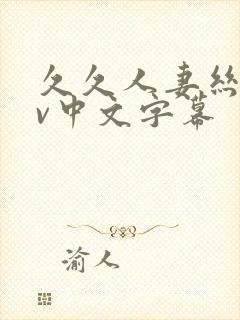 久久人妻絲
v中文字幕
渝人